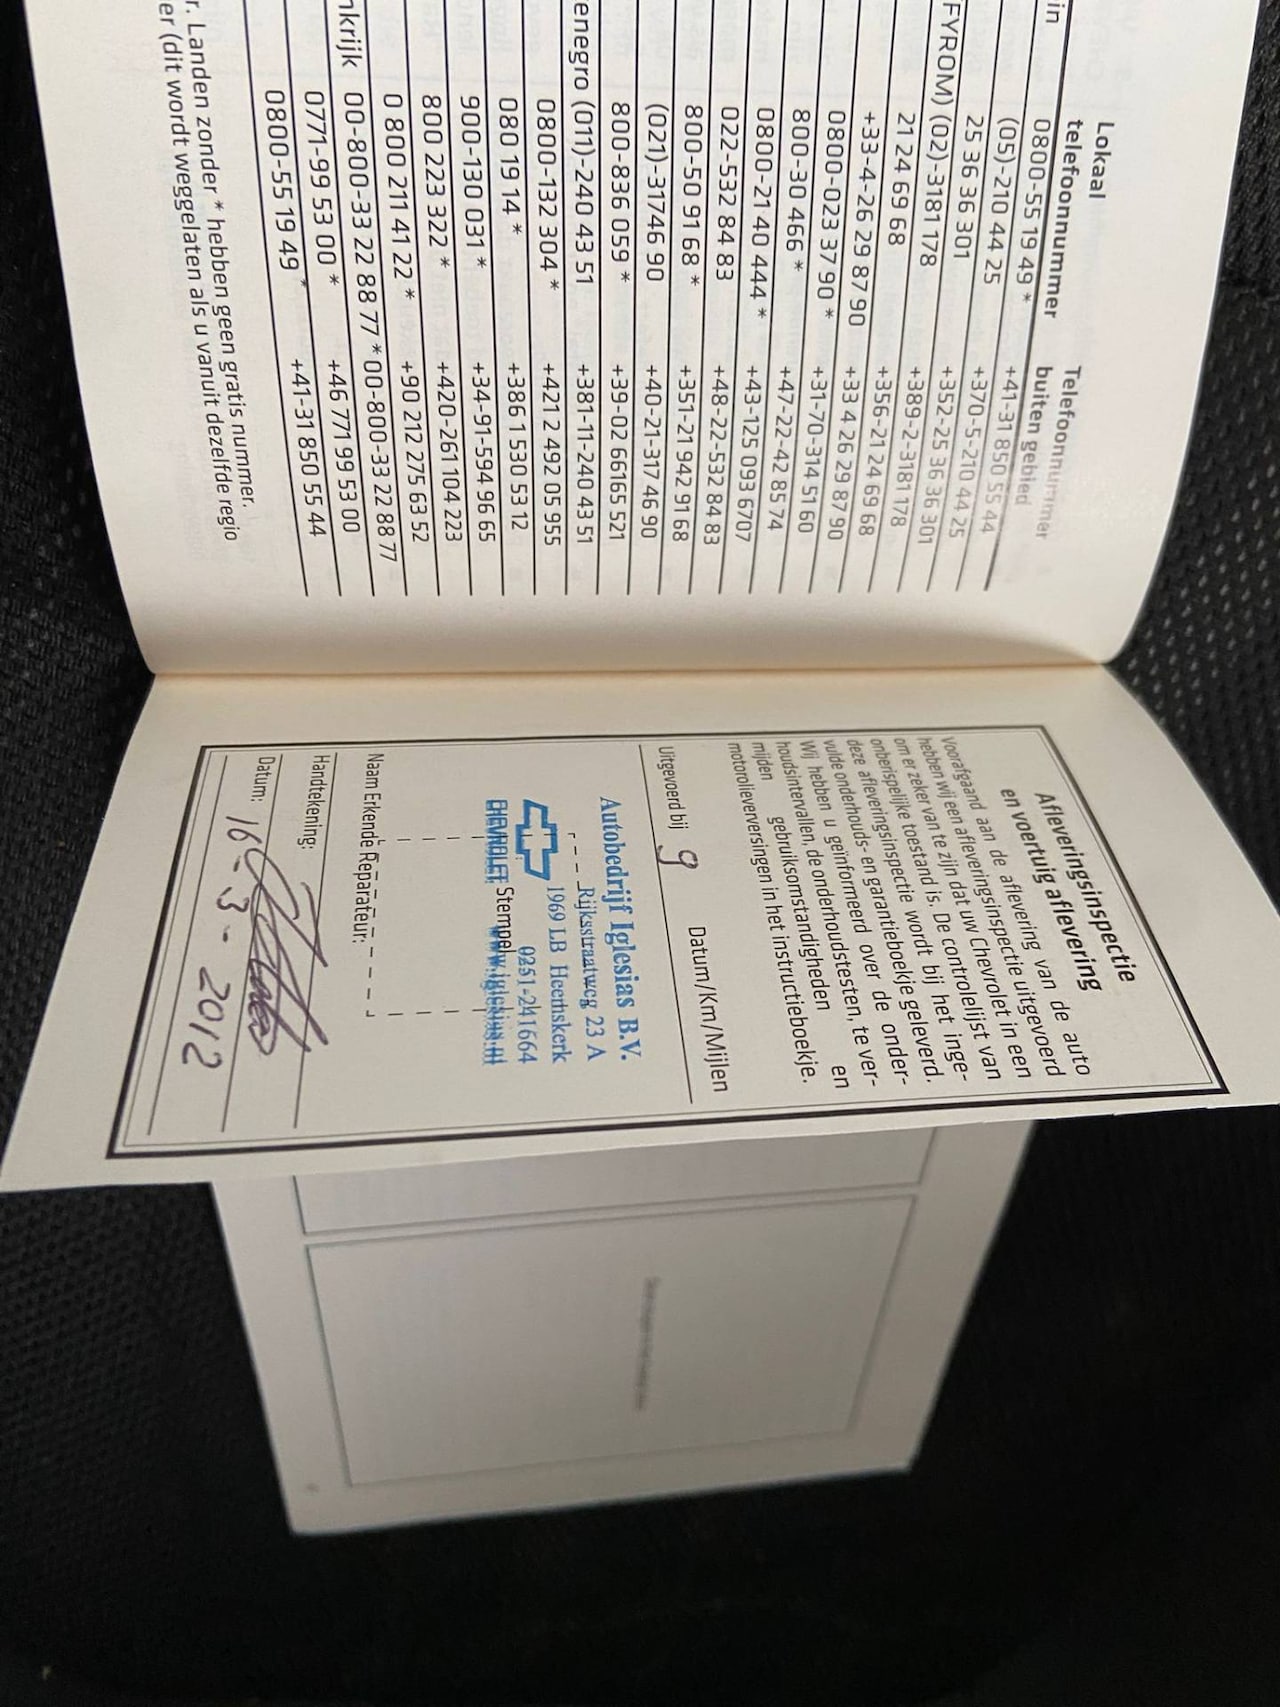 Lokaal
telefoonnummer
Telefoonnummer
buiten gebied
in
0800-55 19 49 * +41-31 850 55 44
(05)-210 44 25 +370-5-210 44 25
25 36 36 301 +352-25 36 36 301
FYROM) (02)-3181 178 +389-2-3181 178
21 24 69 68 +356-21 24 69 68
+33-4-26 29 87 90 +33 4 26 29 87 90
0800-023 37 90 * +31-70-314 51 60
800-30 466 * +47-22-42 85 74
0800-21 40 444 * +43-125 093 6707
022-532 84 83 +48-22-532 84 83
800-50 91 68 * +351-21 942 91 68
(021)-317 46 90 +40-21-317 46 90
800-836 059 * +39-02 66165 521
enegro (011)-240 43 51 +381-11-240 43 51
0800-132 304 * +421 2 492 05 955
080 19 14 * +386 1 530 53 12
900-130 031 * +34-91-594 96 65
800 223 322 * +420-261 104 223
0 800 211 41 22 * +90 212 275 63 52
nkrijk 00-800-33 22 88 77 * 00-800-33 22 88 77
0771-99 53 00 * +46 771 99 53 00
0800-55 19 49 * +41-31 850 55 44
r. Landen zonder * hebben geen gratis nummer.
er (dit wordt weggelaten als u vanuit dezelfde regio
Afleveringsinspectie
en voertuig aflevering
Voorafgaand aan de aflevering van de auto
hebben wij een afleveringsinspectie uitgevoerd
om er zeker van te zijn dat uw Chevrolet in een
onberispelijke toestand is. De controlelijst van
deze afleveringsinspectie wordt bij het inge-
vulde onderhouds- en garantieboekje geleverd.
Wij hebben u geïnformeerd over de onder-
houdsintervallen, de onderhoudstesten, te ver-
mijden gebruiksomstandigheden en
motorolieverversingen in het instructieboekje.
Uitgevoerd bij 9 Datum/Km/Mijlen
Autobedrijf Iglesias B.V.
Rijksstraatweg 23 A
1969 LB Heemskerk
0251-241664
CHEVROLET Stempel www.iglesias.nl
Naam Erkende Reparateur:
Handtekening:
Datum: 16-3-2012